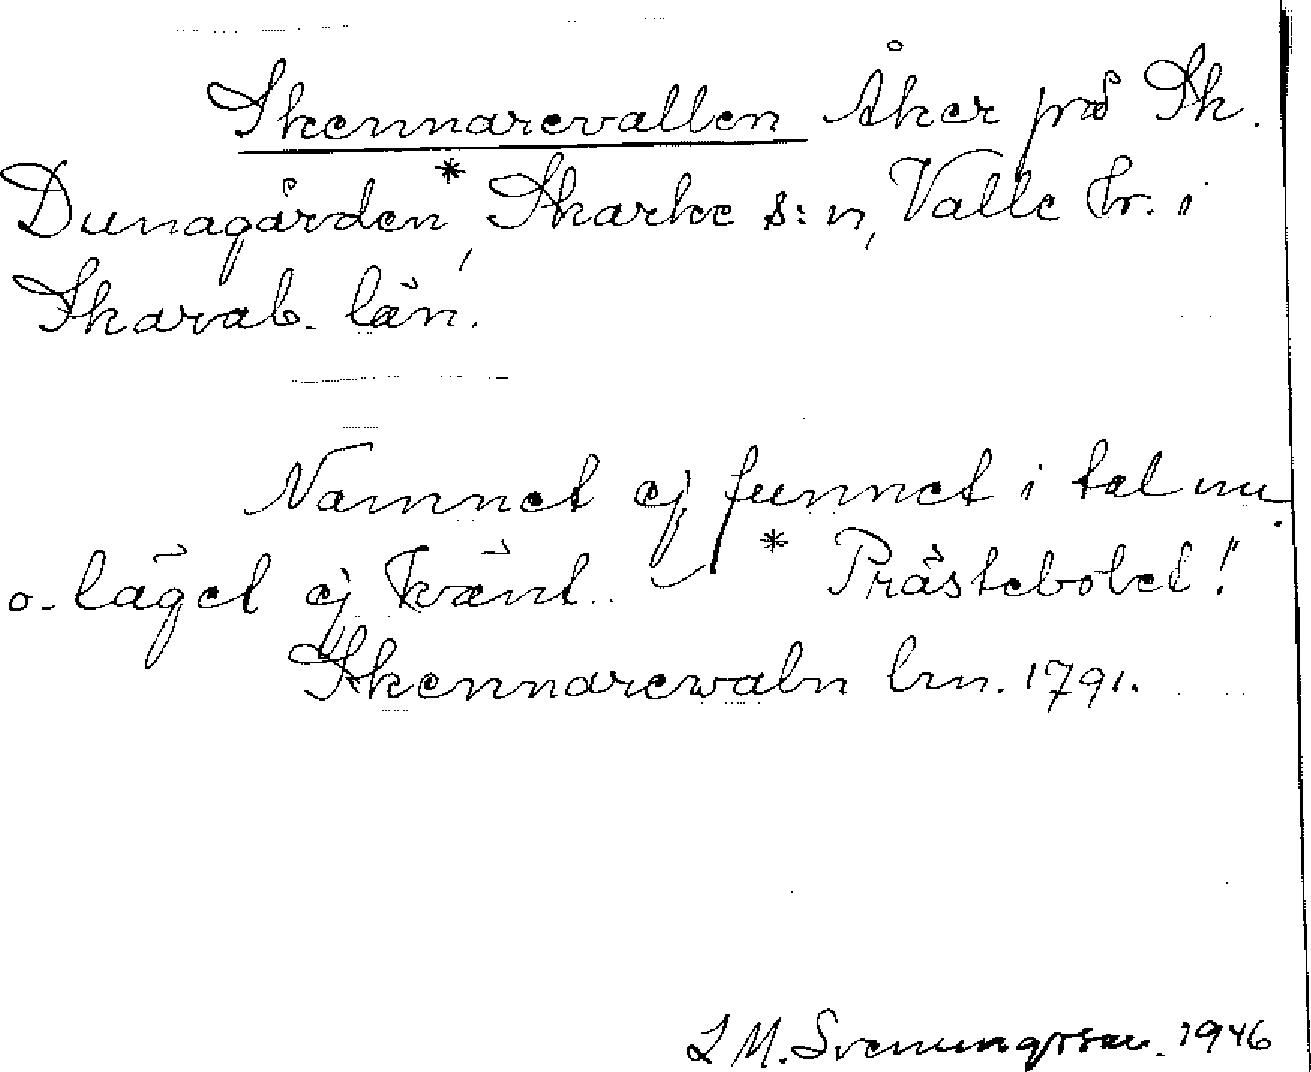 Skennarevallen Åker på Sk.
Dunagården*, Skarke s:n, Valle hr. i
Skarab. län.
Namnet ej funnet i tal nu
o. läget ej känt. * Prästebolet!
Skennarewaln lm. 1791.
L M. Svenungsson. 1946